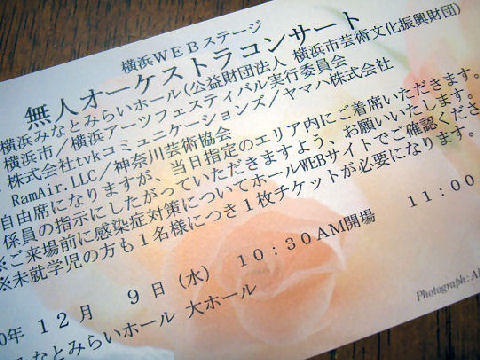 横浜WEBステージ
無人オーケストラコンサート
横浜みなとみらいホール(公益財団法人 横浜市芸術文化振興財団)
横浜市/横浜アーツフェスティバル実行委員会
株式会社tvkコミュニケーションズ/ヤマハ株式会社
RamAir.LLC/神奈川芸術協会
自由席になりますが、当日指定のエリア内にご着席いただきます。
係員の指示にしたがっていただきますよう、お願いいたします。
※ご来場前に感染症対策についてホールWEBサイトでご確認くださ
※未就学児の方も1名様につき1枚チケットが必要になります。
0年 12月 9日(水) 10:30AM開場 11:00
みなとみらいホール 大ホール
Photograph: A